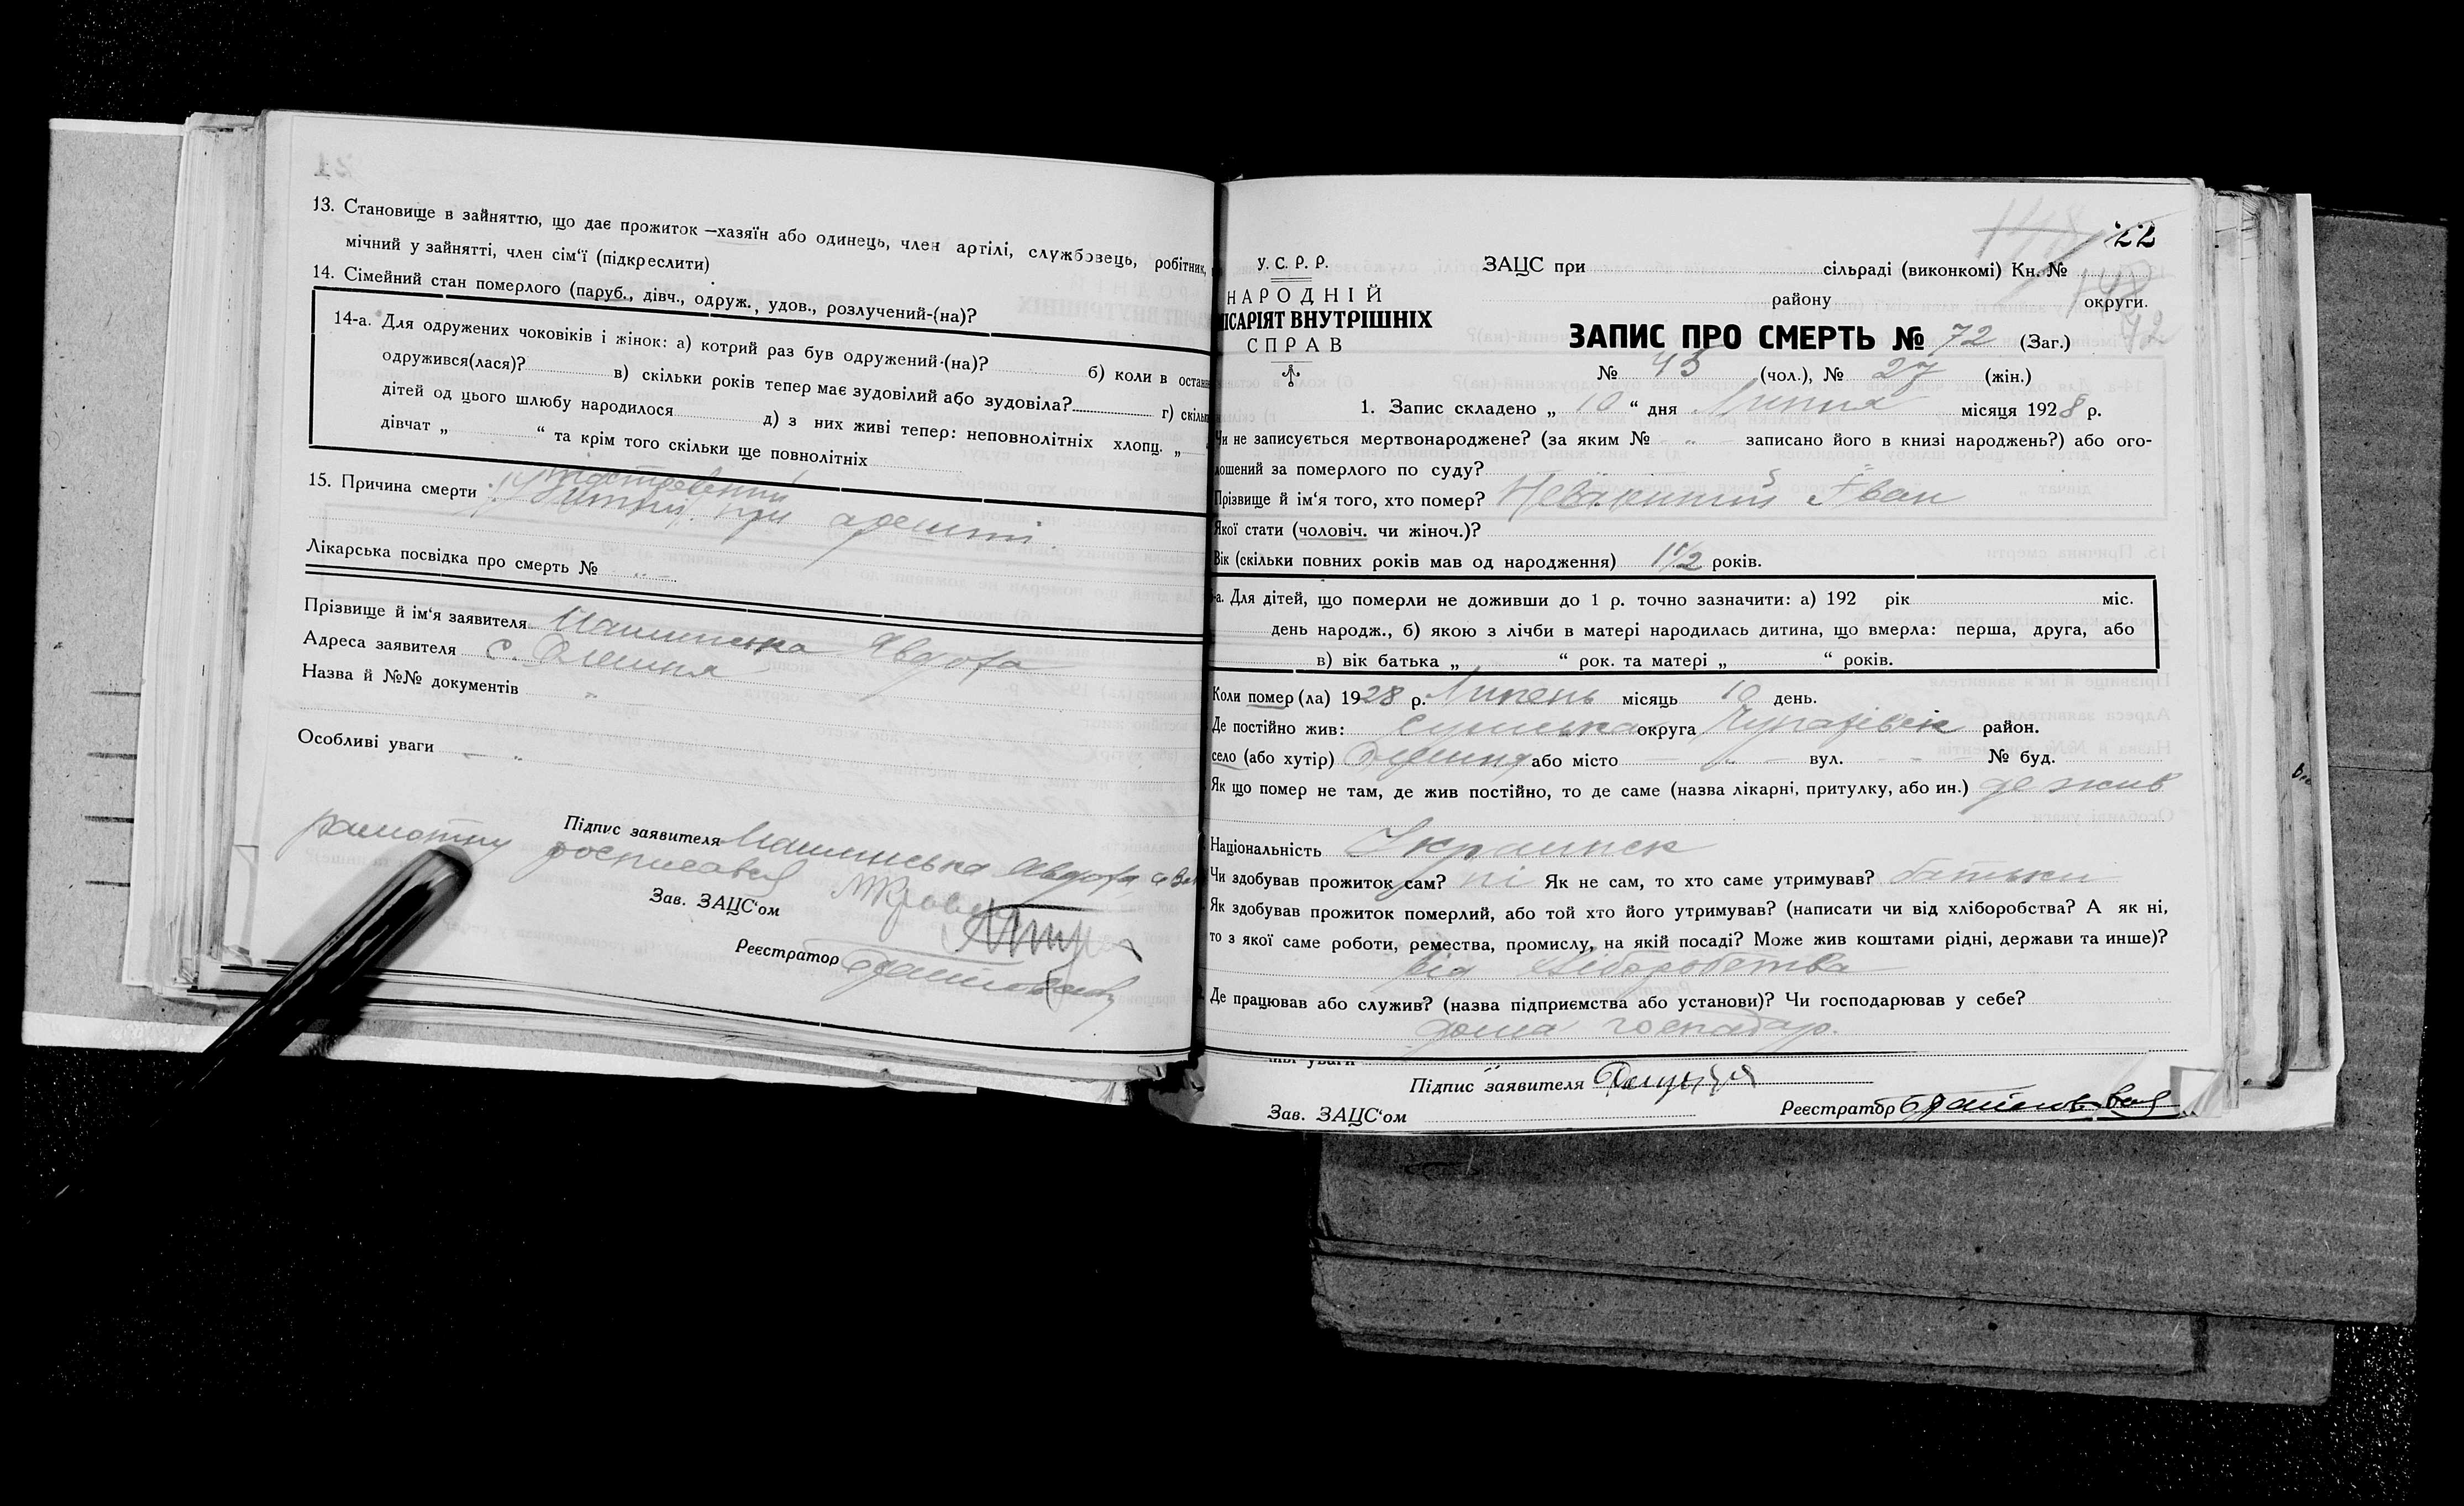 13. Становище в зайняттю, що дає прожиток —хазяїн або одинець, член артілі, службовець, робітник,
мічний у зайнятті, член сім‘ї (підкреслити)
14. Сімейний стан померлого (паруб., дівч., одруж., удов., розлучений-(на)?
14-а. Для одружених чоковіків і жінок: а) котрий раз був одружений-(на)? б) коли в остан
одружився(лася)? в) скільки років тепер має зудовілий або зудовіла? г) скіль
дітей од цього шлюбу народилося д) з них живі тепер: неповнолітніх хлопц. „
дівчат „ “ та крім того скільки ще повнолітніх
15. Причина смерти
при
Лікарська посвідка про смерть №
Прізвище й ім‘я заявителя Явдоха
Адреса заявителя с. Олешня
Назва й №№ документів
Особливі уваги
Підпис заявителя Явдоха
росписався
Зав. ЗАЦС‘ом
Реєстратор
22
У. С. Р. Р.
НАРОДНІЙ
ІСАРІЯТ ВНУТРІШНІХ
СПРАВ
ЗАЦС при сільраді (виконкомі) Кн. №
району округи.
ЗАПИС ПРО СМЕРТЬ № 72 (Заг.)
72
№ 45 (чол.), № 27 (жін.)
1. Запис складено „ 10 “ дня Липня місяця 1928 р.
Чи не записується мертвонароджене? (за яким № „ записано його в книзі народжень?) або ого-
лошений за померлого по суду?
Прізвище й ім‘я того, хто помер? Іван
Якої стати (чоловіч. чи жіноч.)?
Вік (скільки повних років мав од народження) 1 1/2 років.
-а. Для дітей, що померли не доживши до 1 р. точно зазначити: а) 192 рік міс.
день народж., б) якою з лічби в матері народилась дитина, що вмерла: перша, друга, або
в) вік батька „ “ рок. та матері „ “ років.
Коли помер (ла) 1928 р. Липень місяць 10 день.
Де постійно жив: Сумська округа район.
село (або хутір) Олешня або місто вул. № буд.
Як що помер не там, де жив постійно, то де саме (назва лікарні, притулку, або ин.) де жив
Національність
Чи здобував прожиток сам? ні Як не сам, то хто саме утримував? батьки
Як здобував прожиток померлий, або той хто його утримував? (написати чи від хліборобства? А як ні,
то з якої саме роботи, ремества, промислу, на якій посаді? Може жив коштами рідні, держави та инше)?
від хліборобства
Де працював або служив? (назва підприємства або установи)? Чи господарював у себе?
дома господар.
Підпис заявителя
Зав. ЗАЦС‘ом Реєстратор